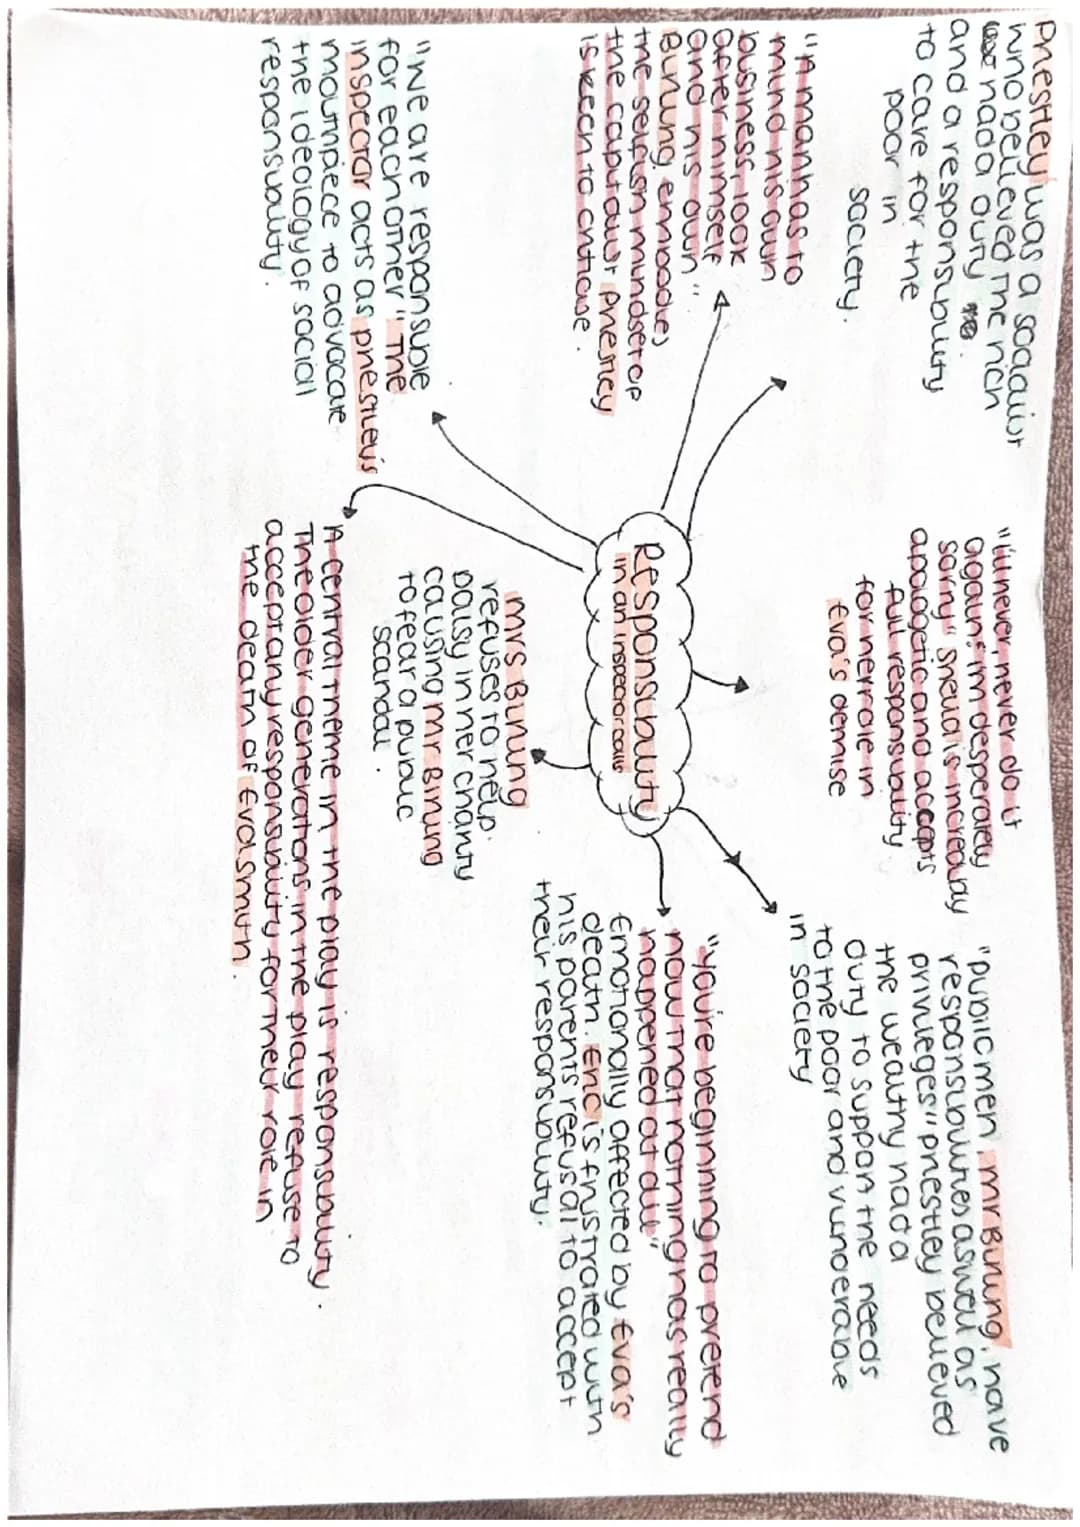 Priestley was a socialist
who believed the rich
had a duty
and a responsibility
to care for the
poor in
society.
"A man has to
mind his own
business, look
after himself
and his own"
Birling embodies
the selfish mindset of
the capitalist Priestley
is keen to criticise.
"We are responsible
for eachother" The
inspector acts as priestley's
mouthpiece to advocate
the ideology of social
responsibility.
Responsibility
in an inspector calls
"i'll never never do it
again I'm desperately
sorry" sheila is incredibly
apologetic and accepts
full responsibility
for her role in
Eva's demise
"public men, mr Birling, have
responsibilities aswell as
privileges" priestley believed
the wealthy had a
duty to support the needs
to the poor and vunderable
in society
"You're beginning to pretend
now that nothing has really
happened at all"
Emotionally affected by Eva's
death. Eric is frustrated with
his parents refusal to accept
their responsibility.
mrs Birling
refuses to help
daisy in her charity
causing mr Birling
to fear a public
scandal.
A central theme in the play is responsibility.
The older generations in the play refuse to
accept any responsibility for their role in
the death of Eva Smith.